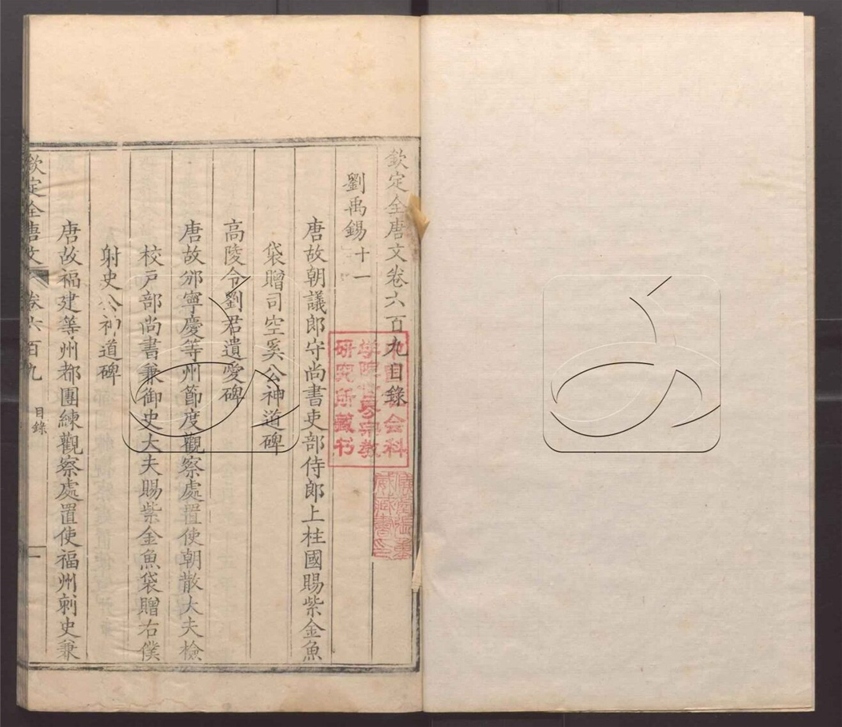 欽定全唐文卷六百九目錄
劉禹錫十一
唐故朝議郎守尚書吏部侍郎上柱國賜紫金魚
袋贈司空奚公神道碑
高陵令劉君遺愛碑
唐故邠寧慶等州節度觀察處置使朝散大夫檢
校戶部尚書兼御史大夫賜紫金魚袋贈右僕
射史公神道碑
唐故福建等州都團練觀察處置使福州刺史兼
欽定全唐文
卷六百九
目錄
一
會科
學院世界宗教
研究所藏书